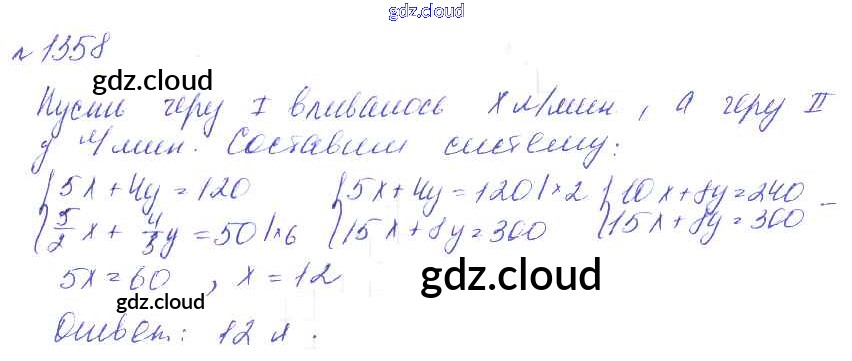 gdz.cloud
№ 1358
gdz.cloud
Пусть через I вливалось x л/мин, а через II
y л/мин. Составим систему:
{5x + 4y = 120 {5x + 4y = 120 | × 2 {10x + 8y = 240
{5/2 x + 4/3 y = 50 | × 6 {15x + 8y = 300 {15x + 8y = 300 -
5x = 60, x = 12
gdz.cloud
gdz.cloud
Ответ: 12 л.
gdz.cloud